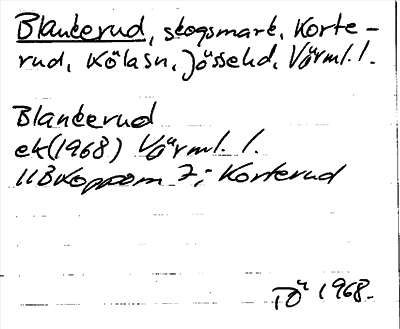 Blankerud, skogsmark, Korte-
rud, Kölasn, Jössehd, Värml. l.
Blankerud
ek (1968) Värml. l.
11B Koppom 7; Korterud
TÖ 1968.